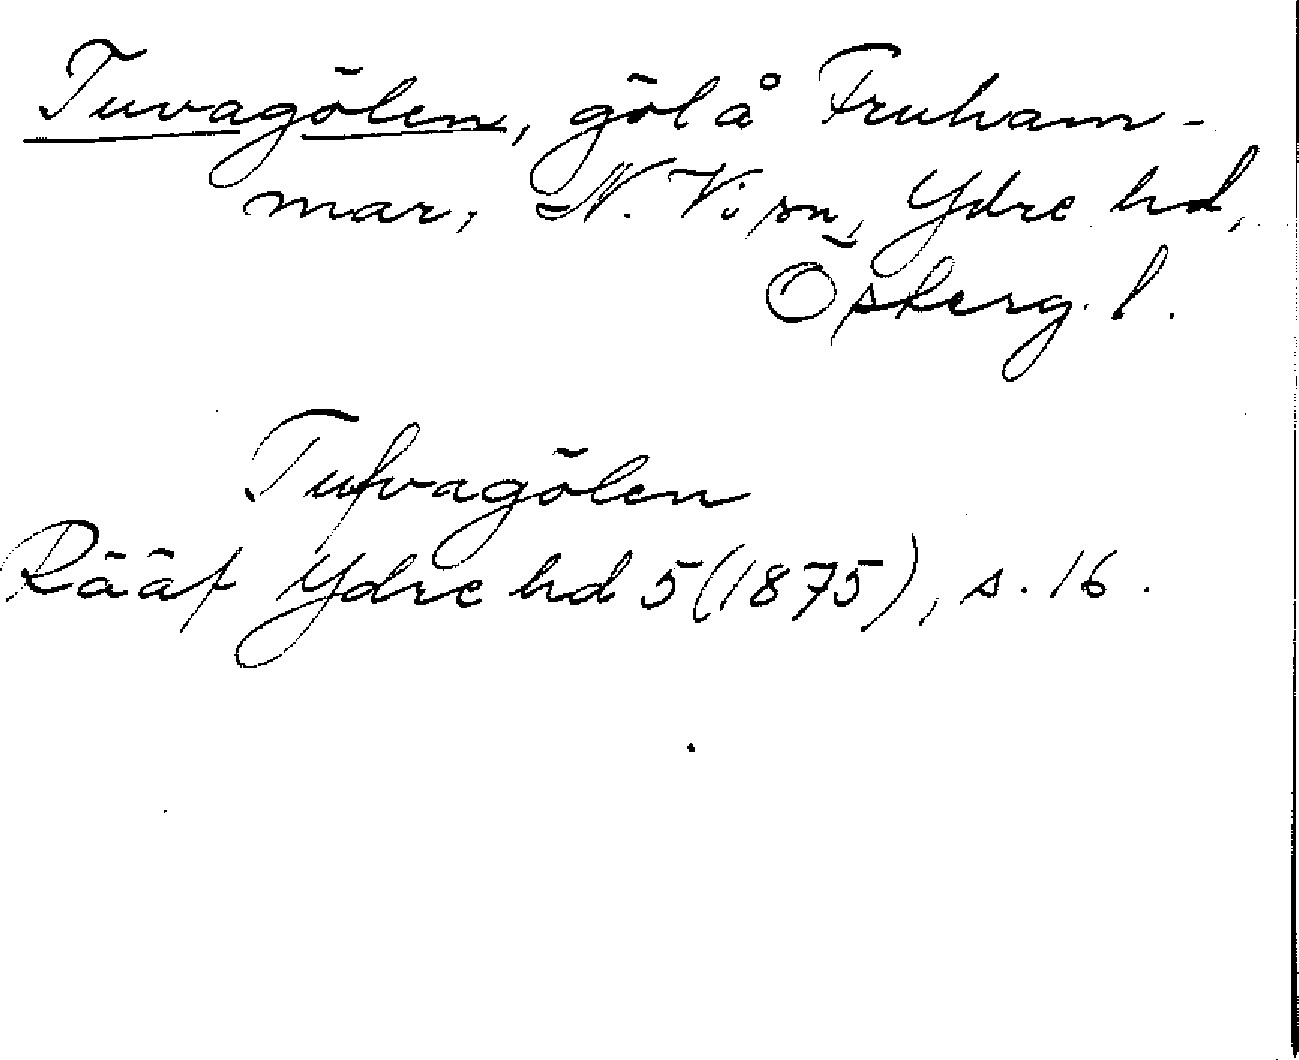 Tuvagölen, göl å Fruham-
mar, N. Vi sn, Ydre hd,
Österg. l.
Tufvagölen
Rääf Ydre hd 5 (1875), s. 16.